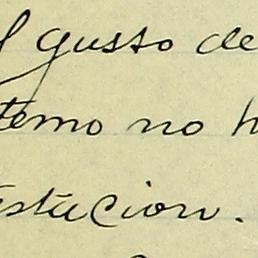 l gusto de
temo no h
estacion.